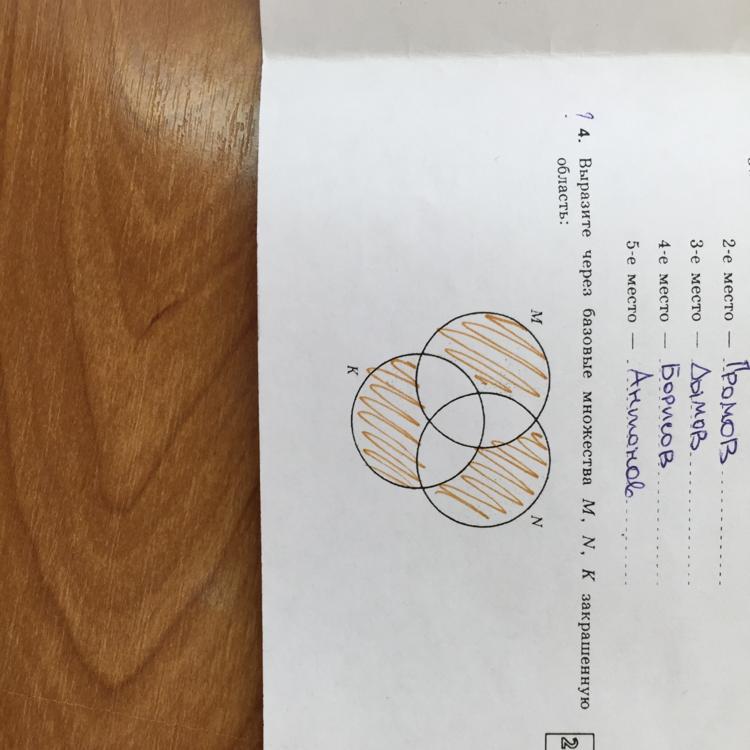 2-е место — Громов
3-е место — Дымов
4-е место — Борисов
5-е место — Антонов
? 4. Выразите через базовые множества M, N, K закрашенную
область:
M
N
K
2